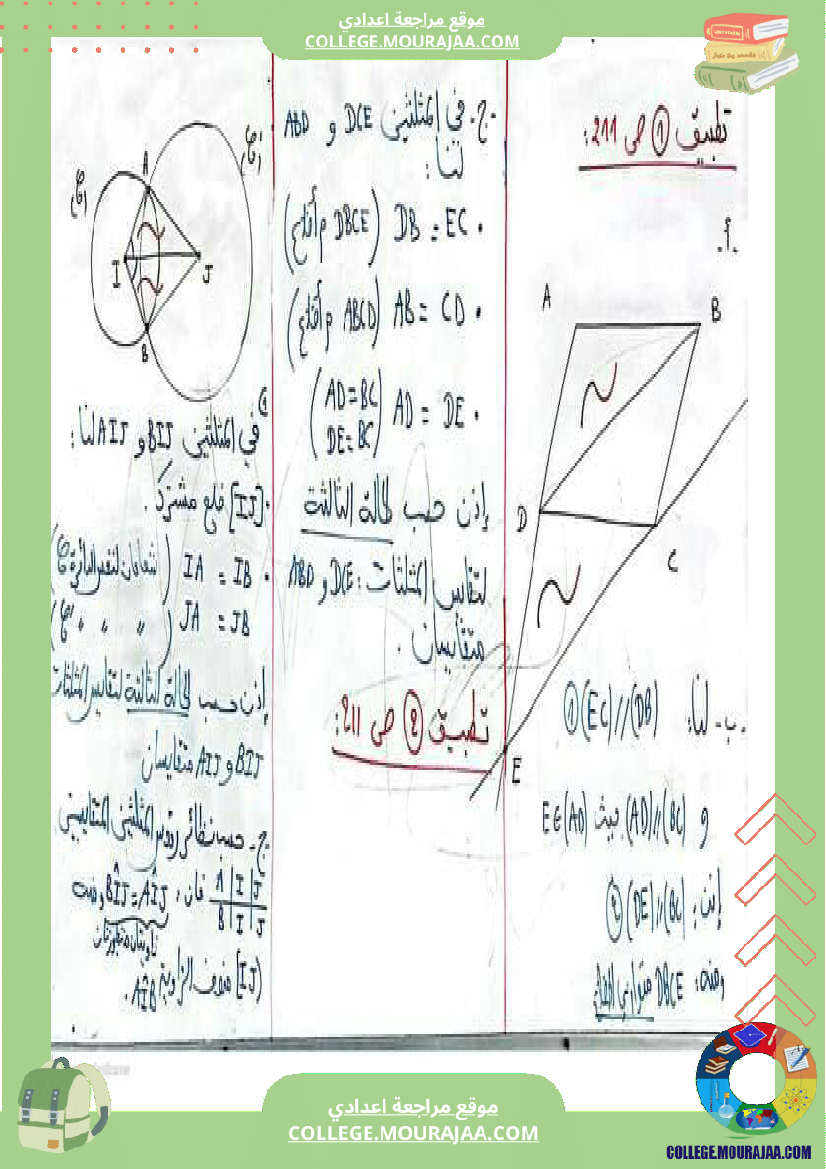 موقع مراجعة اعدادي
COLLEGE.MOURAJAA.COM
تطبيق ① ص 211:
أ.
A
B
D
C
E
ب- لنا: (EC)//(DB) ①
و (AD)//(BC) حيث E∈(AD)
إذن: (DE)//(BC) ②
ومنه: DBCE متوازي أضلاع
ج. في المثلثين DCE و ABD
لنا:
• DB = EC (DBCE م أضلاع)
• AB = CD (ABCD م أضلاع)
• AD = DE (AD=BC
DE=BC)
إذن حسب الحالة الثالثة
لتقايس المثلثات: DCE و ABD
متقايسان.
تطبيق ② ص 211:
A
I
J
B
في المثلثين BIJ و AIJ لنا:
• [IJ] ضلع مشترك.
• IA = IB (شعاعان لنفس الدائرة
JA = JB (〃 〃 〃
إذن حسب الحالة الثالثة لتقايس المثلثات
BIJ و AIJ متقايسان
ج- حسب نظائر رؤوس المثلثين المتقايسين
A | I | J
B | I | J
فان: BÎJ = AÎJ ومنه
زاويتان متجاورتان
[IJ) منصف الزاوية AÎB.
موقع مراجعة اعدادي
COLLEGE.MOURAJAA.COM
COLLEGE.MOURAJAA.COM